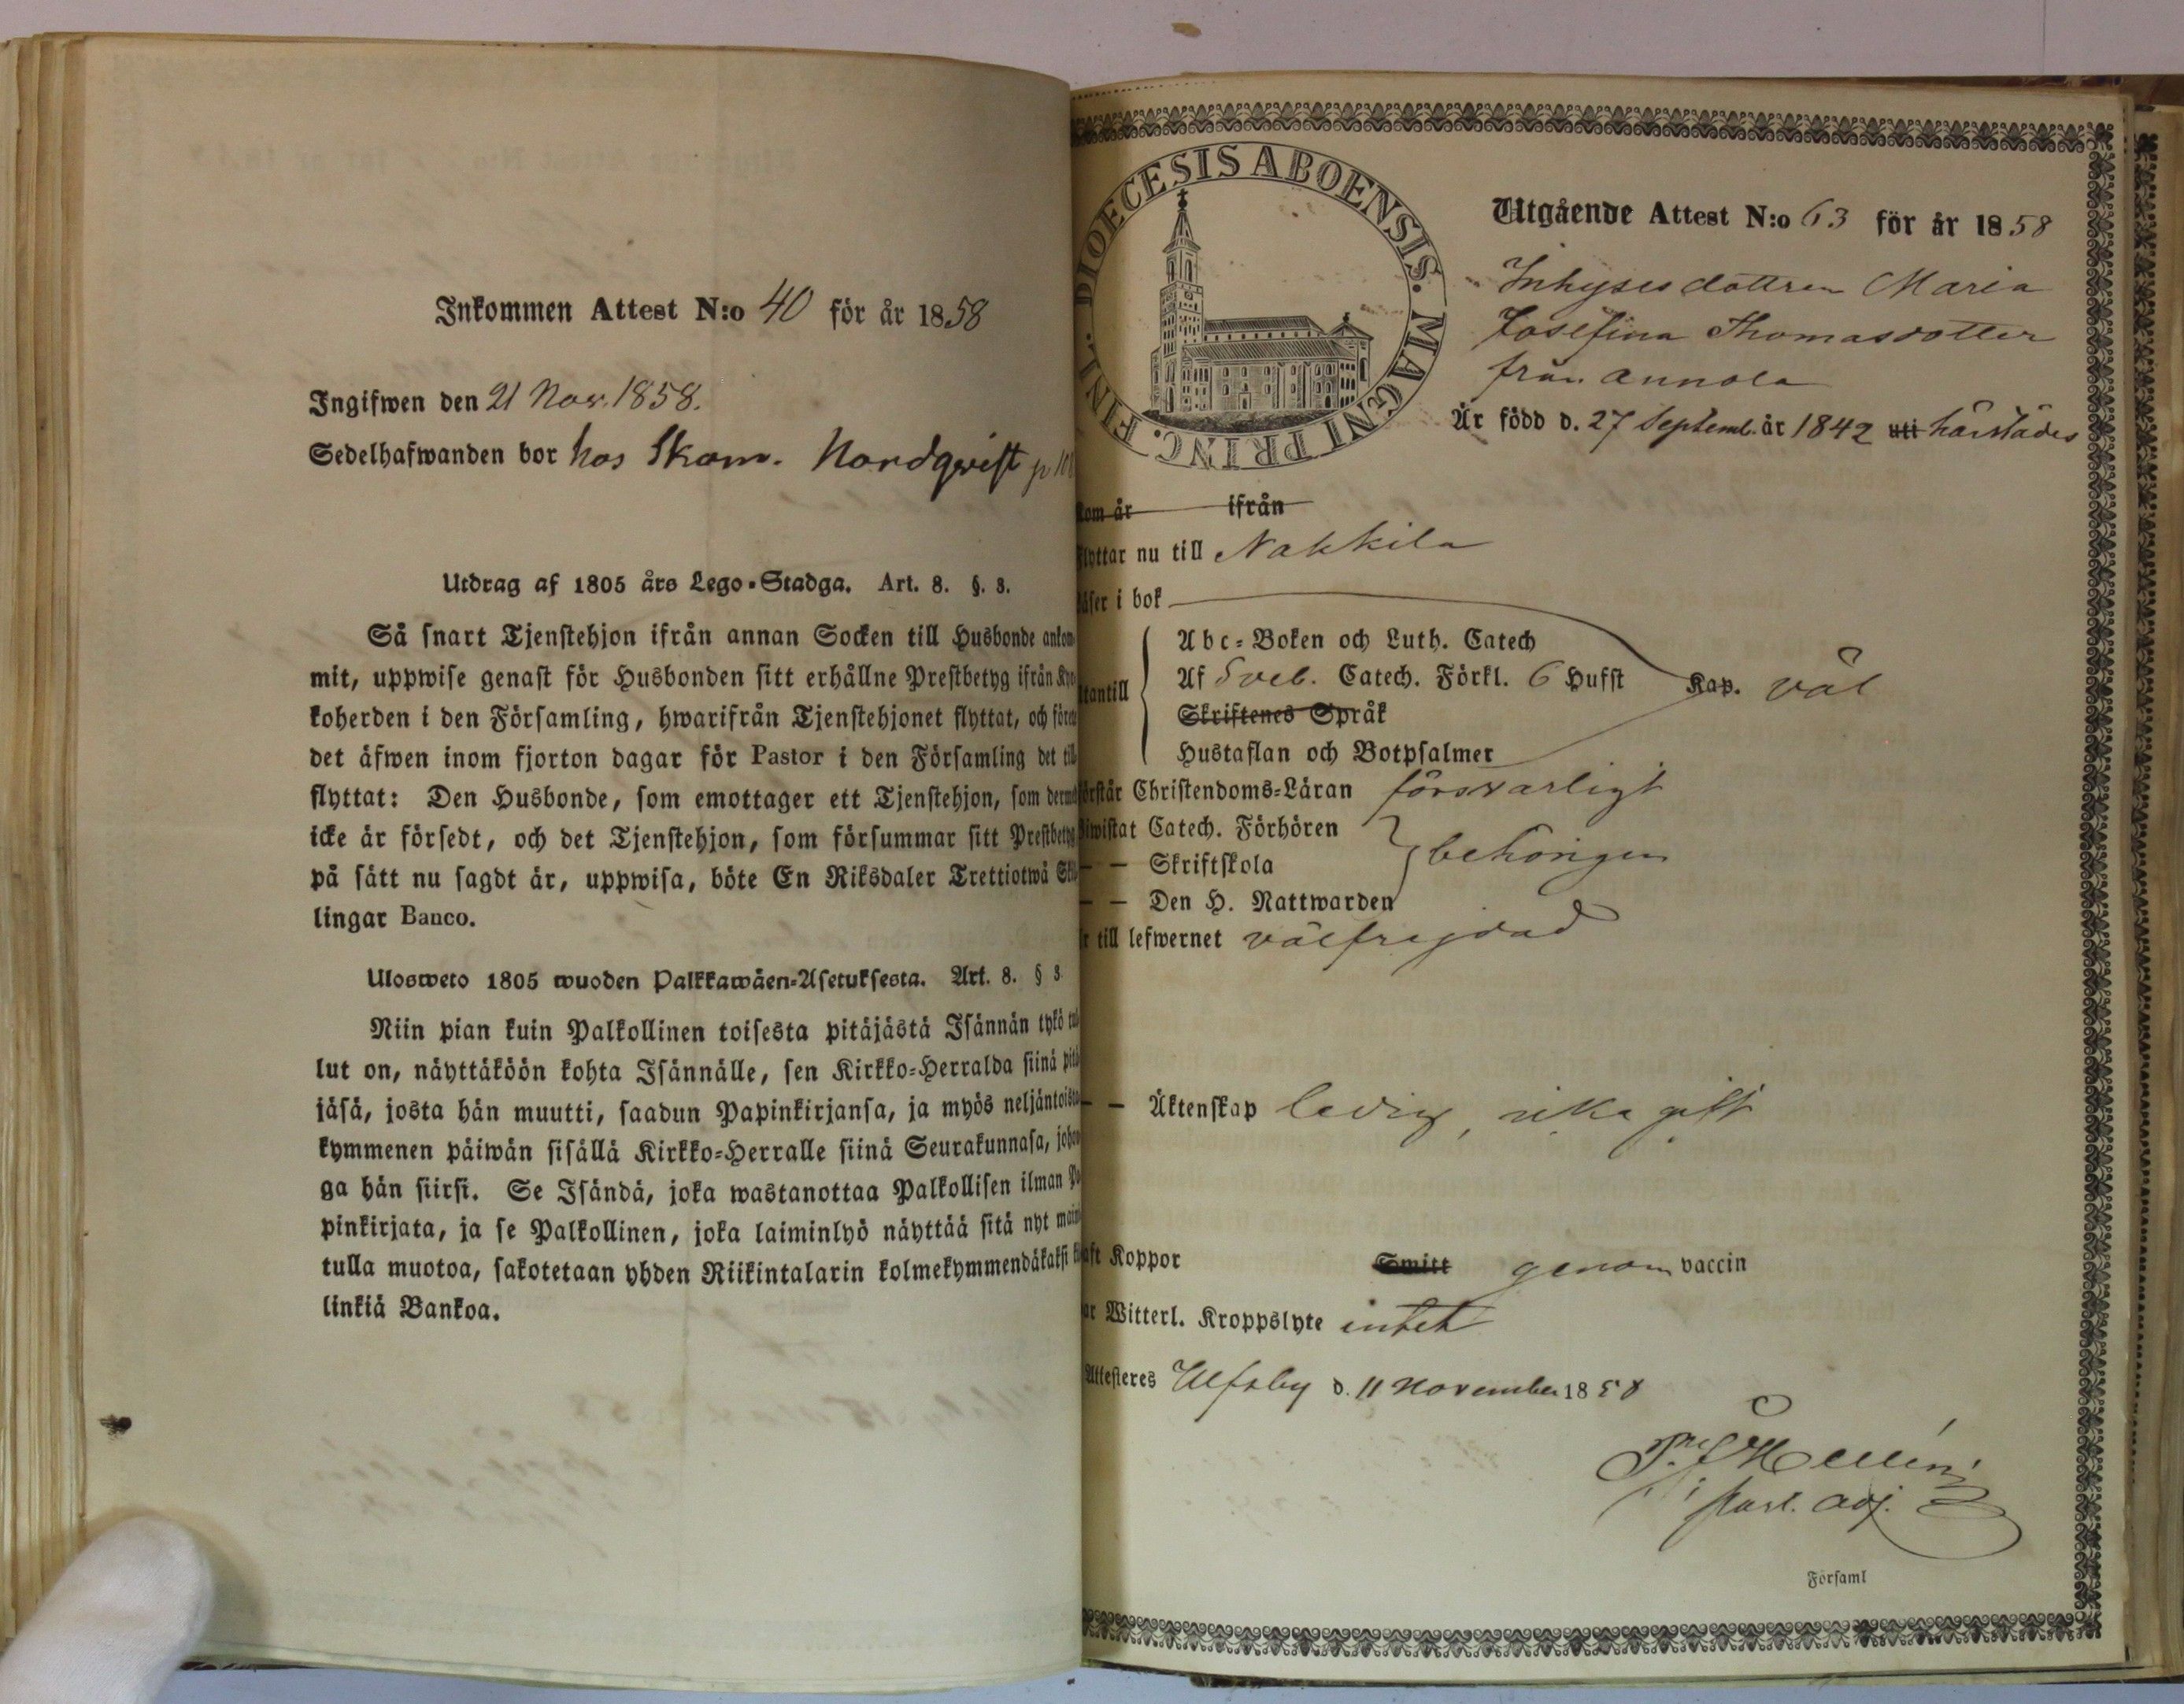 Inkommen Attest N:o 40 för år 1858
Ingifwen den 21 Nov. 1858.
Sedelhafwanden bor hos Skom. Nordqvist
Utdrag af 1805 års Lego-Stadga. Art. 8. §. 3.
Så snart Tjenstehjon ifrån annan Socken till Husbonde ankom-
mit, uppwise genast för Husbonden sitt erhållne Prestbetyg ifrån
koherden i den Församling, hwarifrån Tjenstehjonet flyttat, och
det äfwen inom fjorton dagar för Pastor i den Församling det
flyttat: Den Husbonde, som emottager ett Tjenstehjon, som
icke är försedt, och det Tjenstehjon, som försummar sitt Prestbetyg
på sätt nu sagdt är, uppwisa, böte En Riksdaler Trettiotwå
lingar Banco.
Ulosweto 1805 wuoden Palkkawäen-Asetuksesta. Art. 8. § 3
Niin pian kuin Palkollinen toisesta pitäjästä Isännän tykö
lut on, näyttäköön kohta Isännälle, sen Kirkko-Herralda siinä
jäsä, josta hän muutti, saadun Papinkirjansa, ja myös neljäntoista
kymmenen päiwän sisällä Kirkko-Herralle siinä Seurakunnasa,
ga hän siirsi. Se Isändä, joka wastanottaa Palkollisen ilman
pinkirjata, ja se Palkollinen, joka laiminlyö näyttää sitä nyt
tulla muotoa, sakotetaan yhden Riikintalarin kolmekymmendäkaksi
linkiä Bankoa.
DIOECESIS ABOENSIS. MAGNI PRINC. FINL.
Utgående Attest N:o 63 för år 1858
Inhysesdottren Maria
Josefina Thomasdotter
från Annola
Är född d. 27 Septemb. år 1842 uti härstädes
kom år ifrån
flyttar nu till Nakkila
läser i bok
Abc-Boken och Luth. Catech
utantill Af Sveb. Catech. Förkl. 6 Hufst Kap. väl
Skriftenes Språk
Hustaflan och Botpsalmer
förstår Christendoms-Läran försvarligt
Biwistat Catech. Förhören
— — Skriftskola behörigen
— — Den H. Nattwarden
är till lefwernet välfrejdad
— — Äktenskap ledig, icke gift
haft Koppor Smitt genom vaccin
har Witterl. Kroppslyte intet
Attesteres Ulfsby d. 11 November 1858
past. adj.
Församl